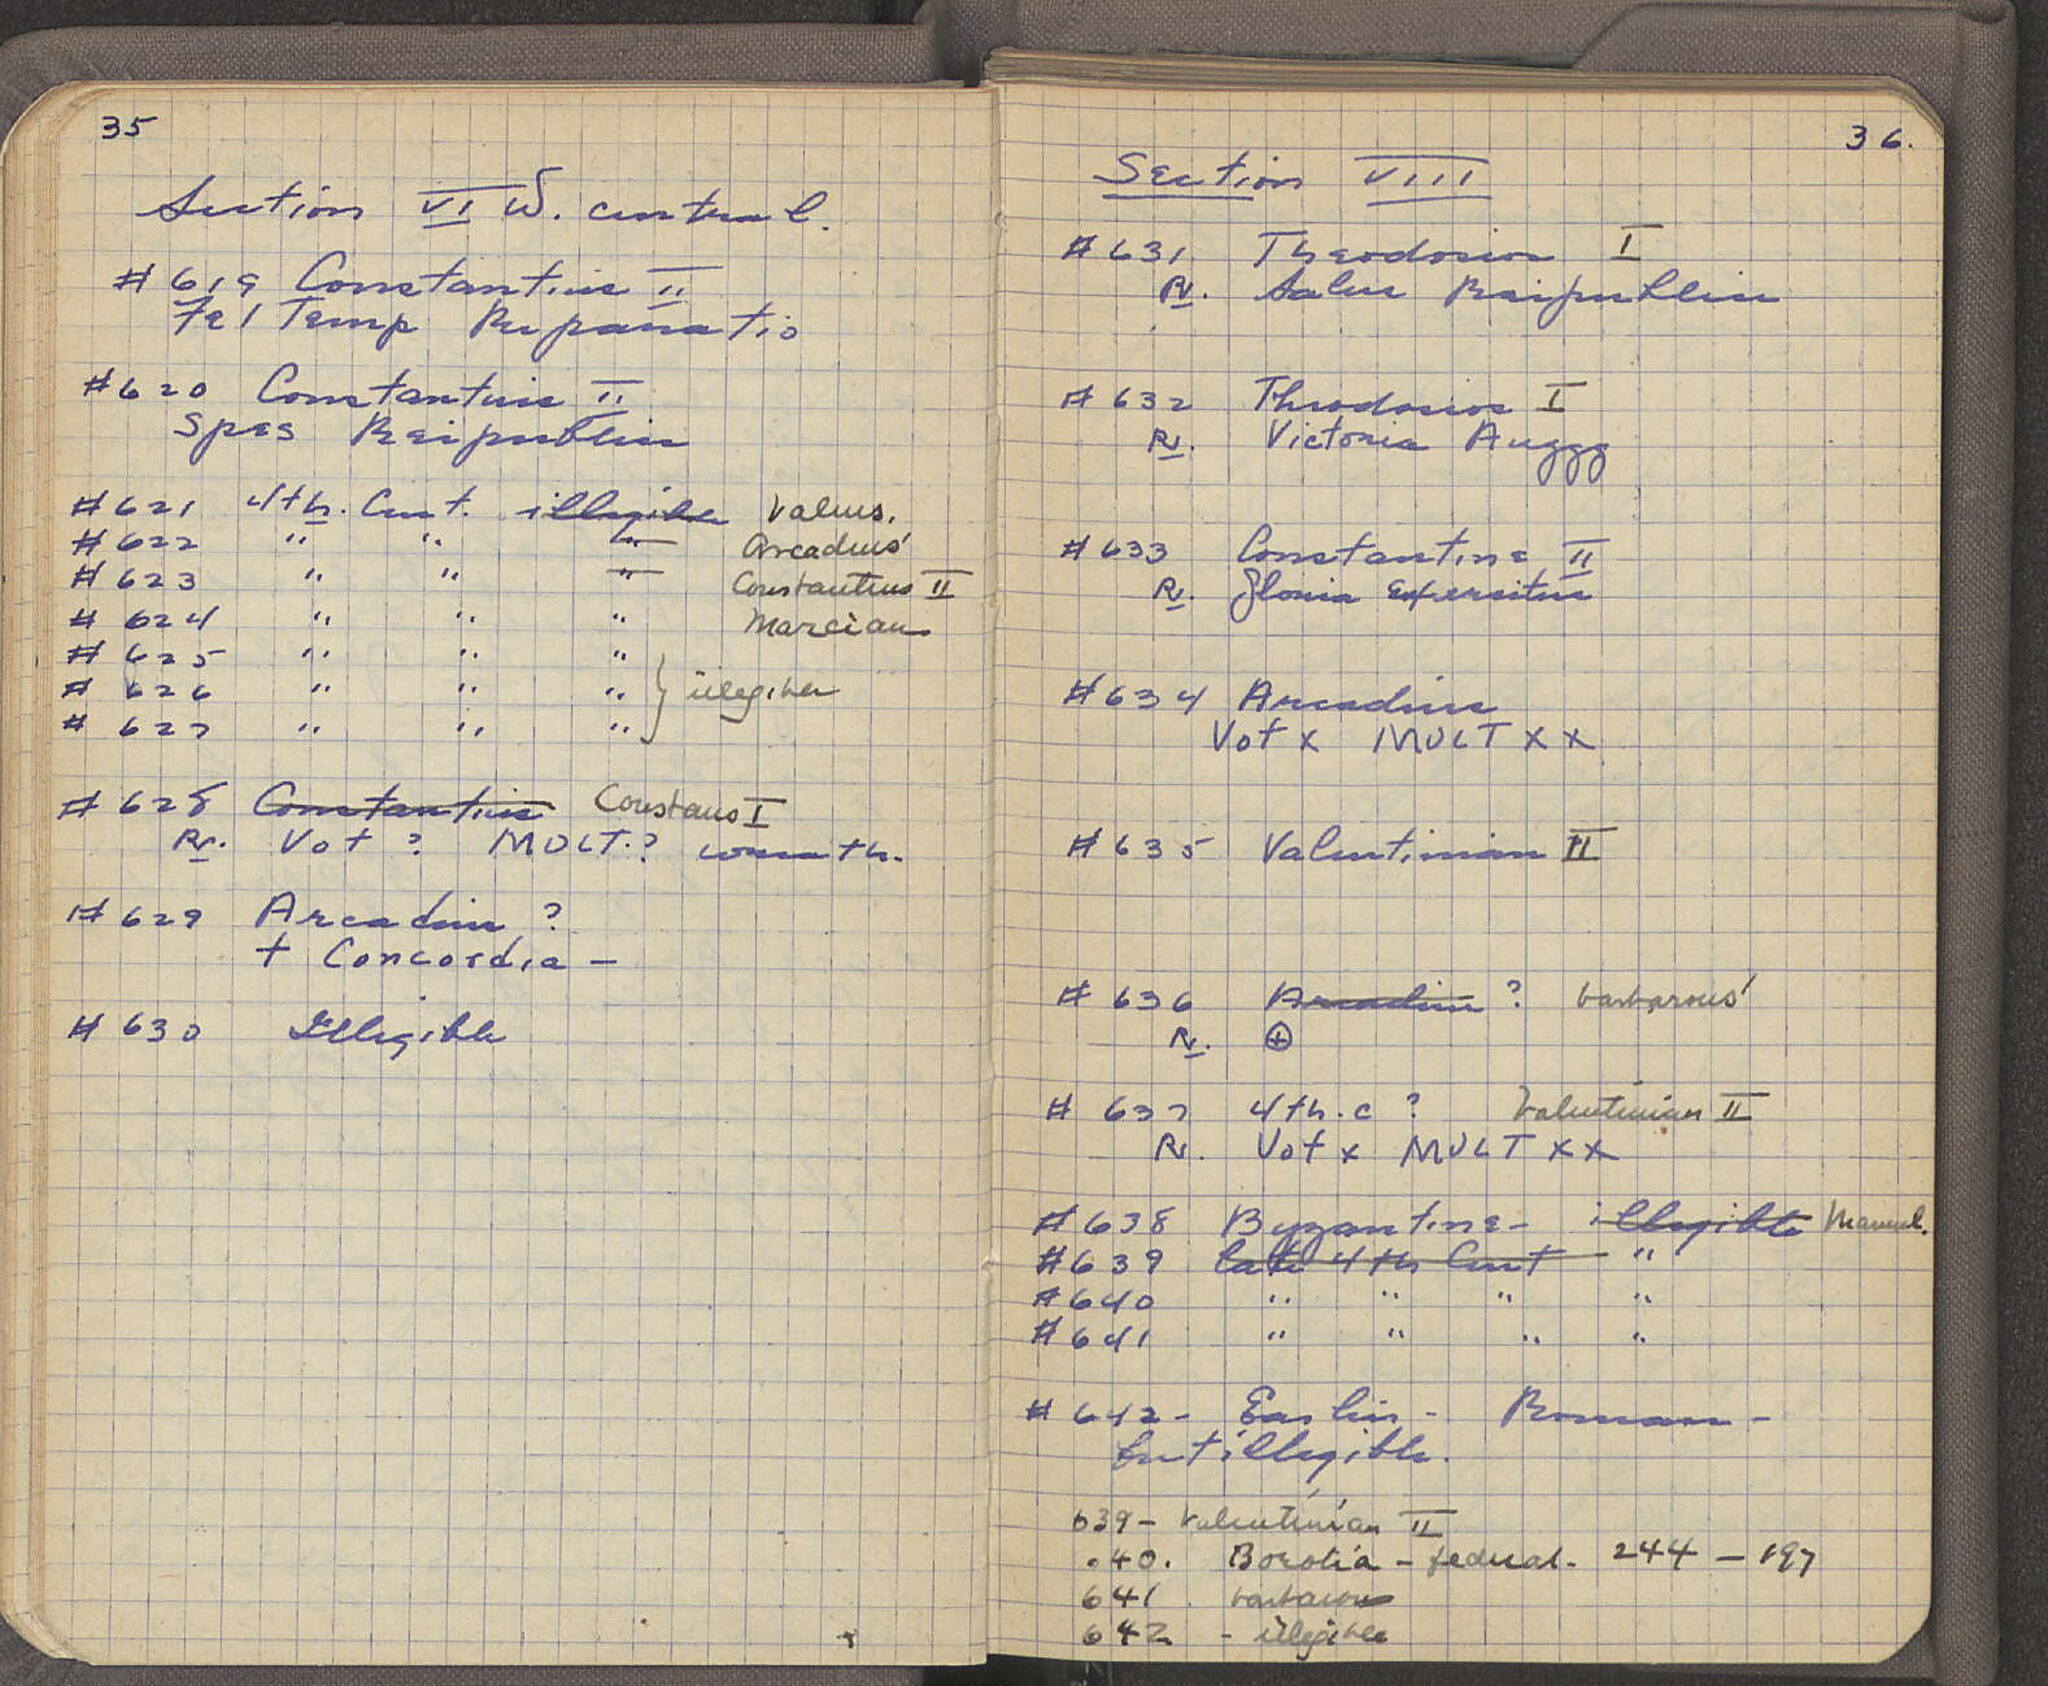 35
Section VI W. central.
#619 Constantius II
Fel Temp Reparatio
#620 Constantius II
Spes Reipublice
#621 4th. Cent. illegible Valens.
#622 " " " Arcadius
#623 " " " Constantius II
#624 " " " Marcian
#625 " " "
#626 " " " } illegible
#627 " " "
#628 Constantius Constans I
Rv. Vot ? MULT.? wreath.
#629 Arcadius ?
+ Concordia -
#630 Illegible
36.
Section VIII
#631 Theodosios I
Rv. Salus Reipublice
#632 Theodosios I
Rv. Victoria Auggg
#633 Constantine II
Rv. Gloria Exercitus
#634 Arcadius
Vot x MULT x x
#635 Valentinian II
#636 Arcadius ? barbarous
Rv. ⊕
#637 4th. c ? Valentinian II
Rv. Vot x MULT x x
#638 Byzantine - illegible Manuel.
#639 late 4th Cent "
#640 " " " "
#641 " " " "
#642 - Earlier - Roman -
but illegible.
639 - Valentinian II
.40. Boeotia - federal - 244 - 197
641 barbarous
642 - illegible